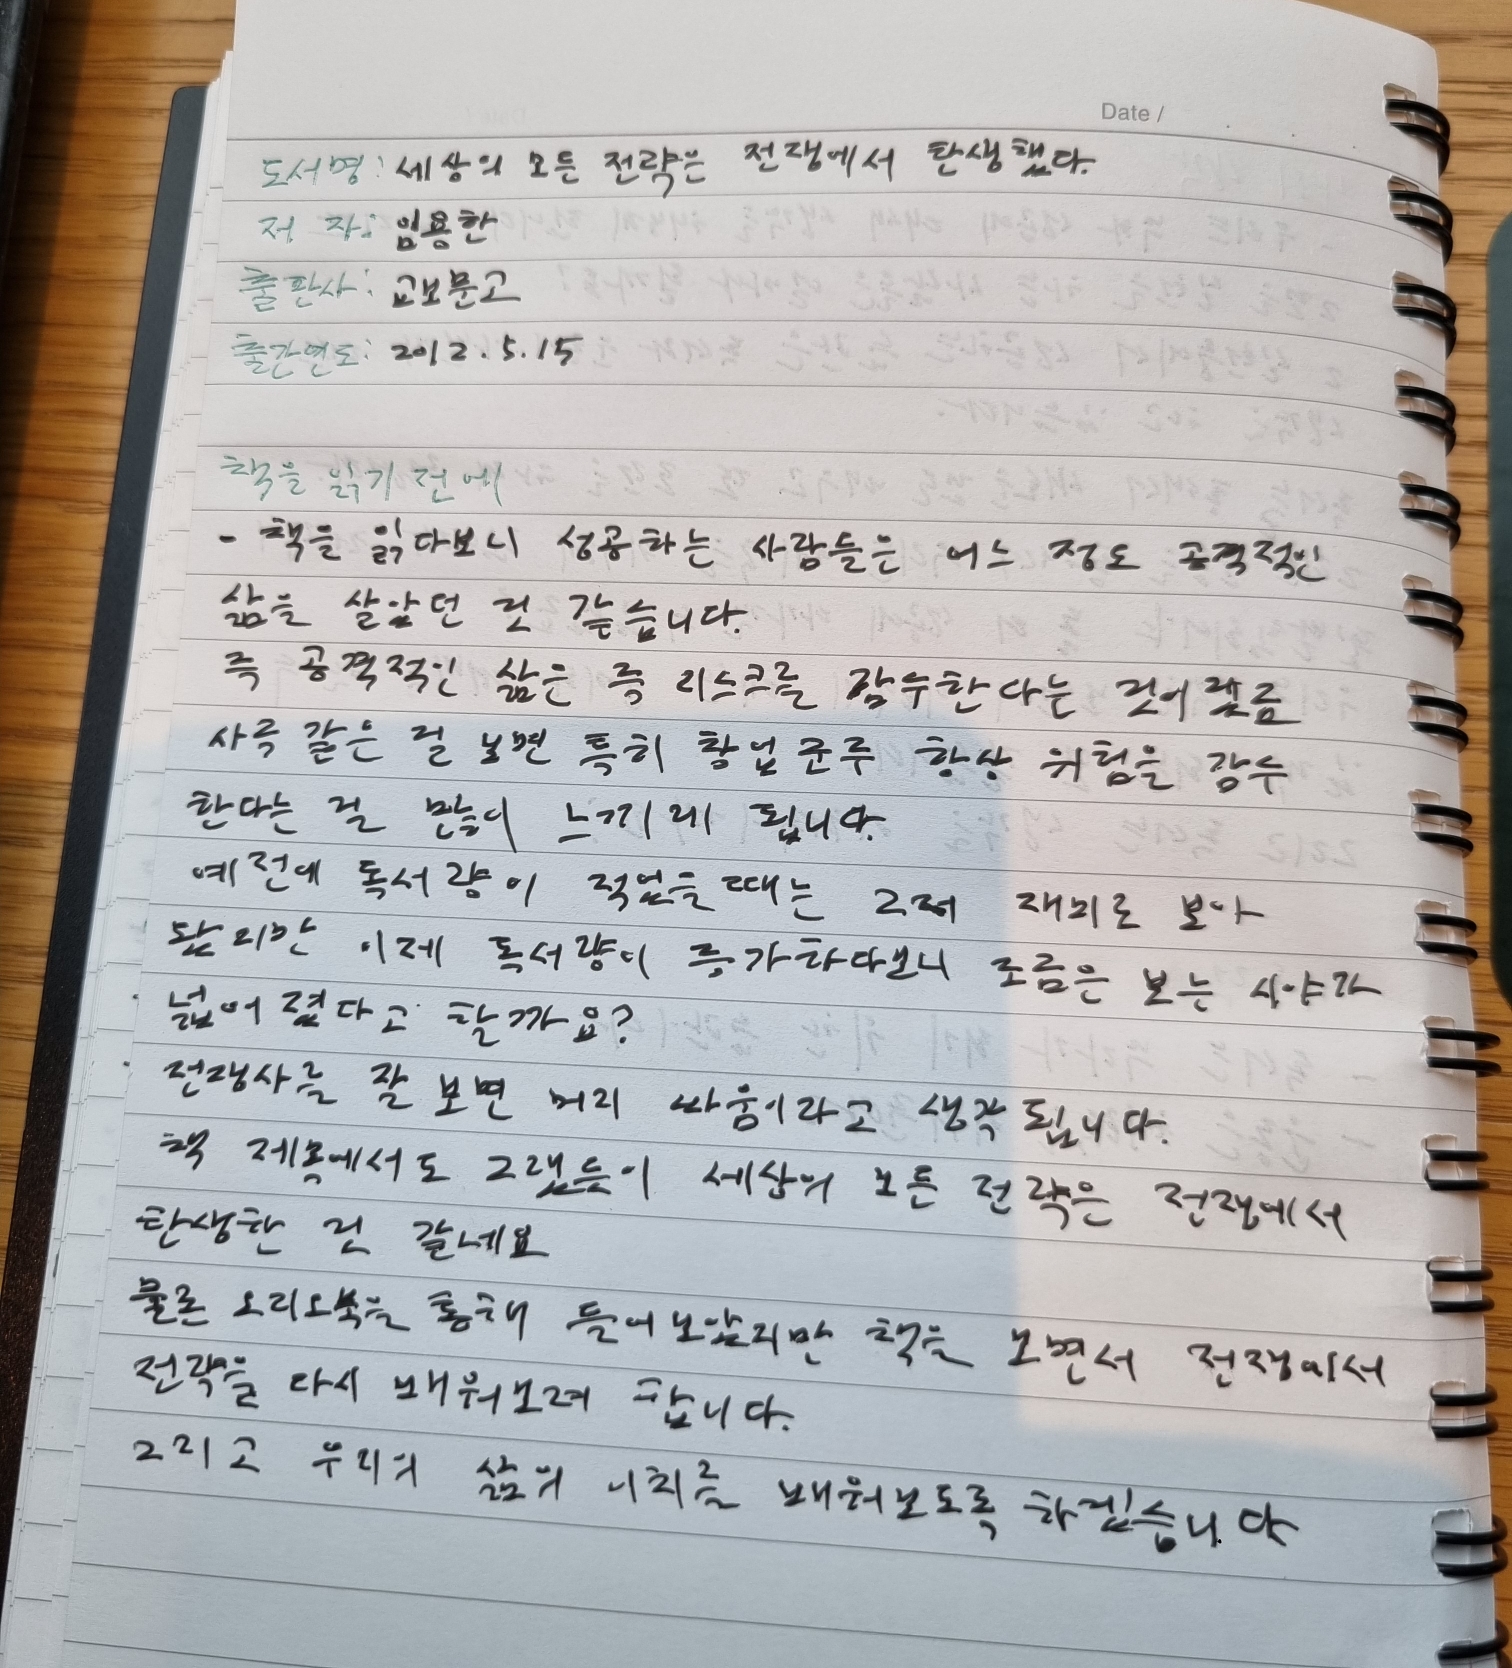 Date /
도서명: 세상의 모든 전략은 전쟁에서 탄생했다.
저 자: 임용한
출판사: 교보문고
출간연도: 2012.5.15
책을 읽기 전에
- 책을 읽다보니 성공하는 사람들은 어느 정도 공격적인
삶을 살았던 것 같습니다.
즉 공격적인 삶은 즉 리스크를 감수한다는 것이겠죠
사극 같은 걸 보면 특히 창업군주 항상 위험을 감수
한다는 걸 많이 느끼게 됩니다.
예전에 독서량이 적었을때는 그저 재미로 보아
왔지만 이제 독서량이 증가하다보니 조금은 보는 시야가
넓어졌다고 할까요?
전쟁사를 잘 보면 머리 싸움이라고 생각됩니다.
책 제목에서도 그랬듯이 세상의 모든 전략은 전쟁에서
탄생한 것 같네요
물론 오디오북을 통해 들어보았지만 책을 보면서 전쟁에서
전략을 다시 배워보려 합니다.
그리고 우리의 삶의 이치를 배워보도록 하겠습니다